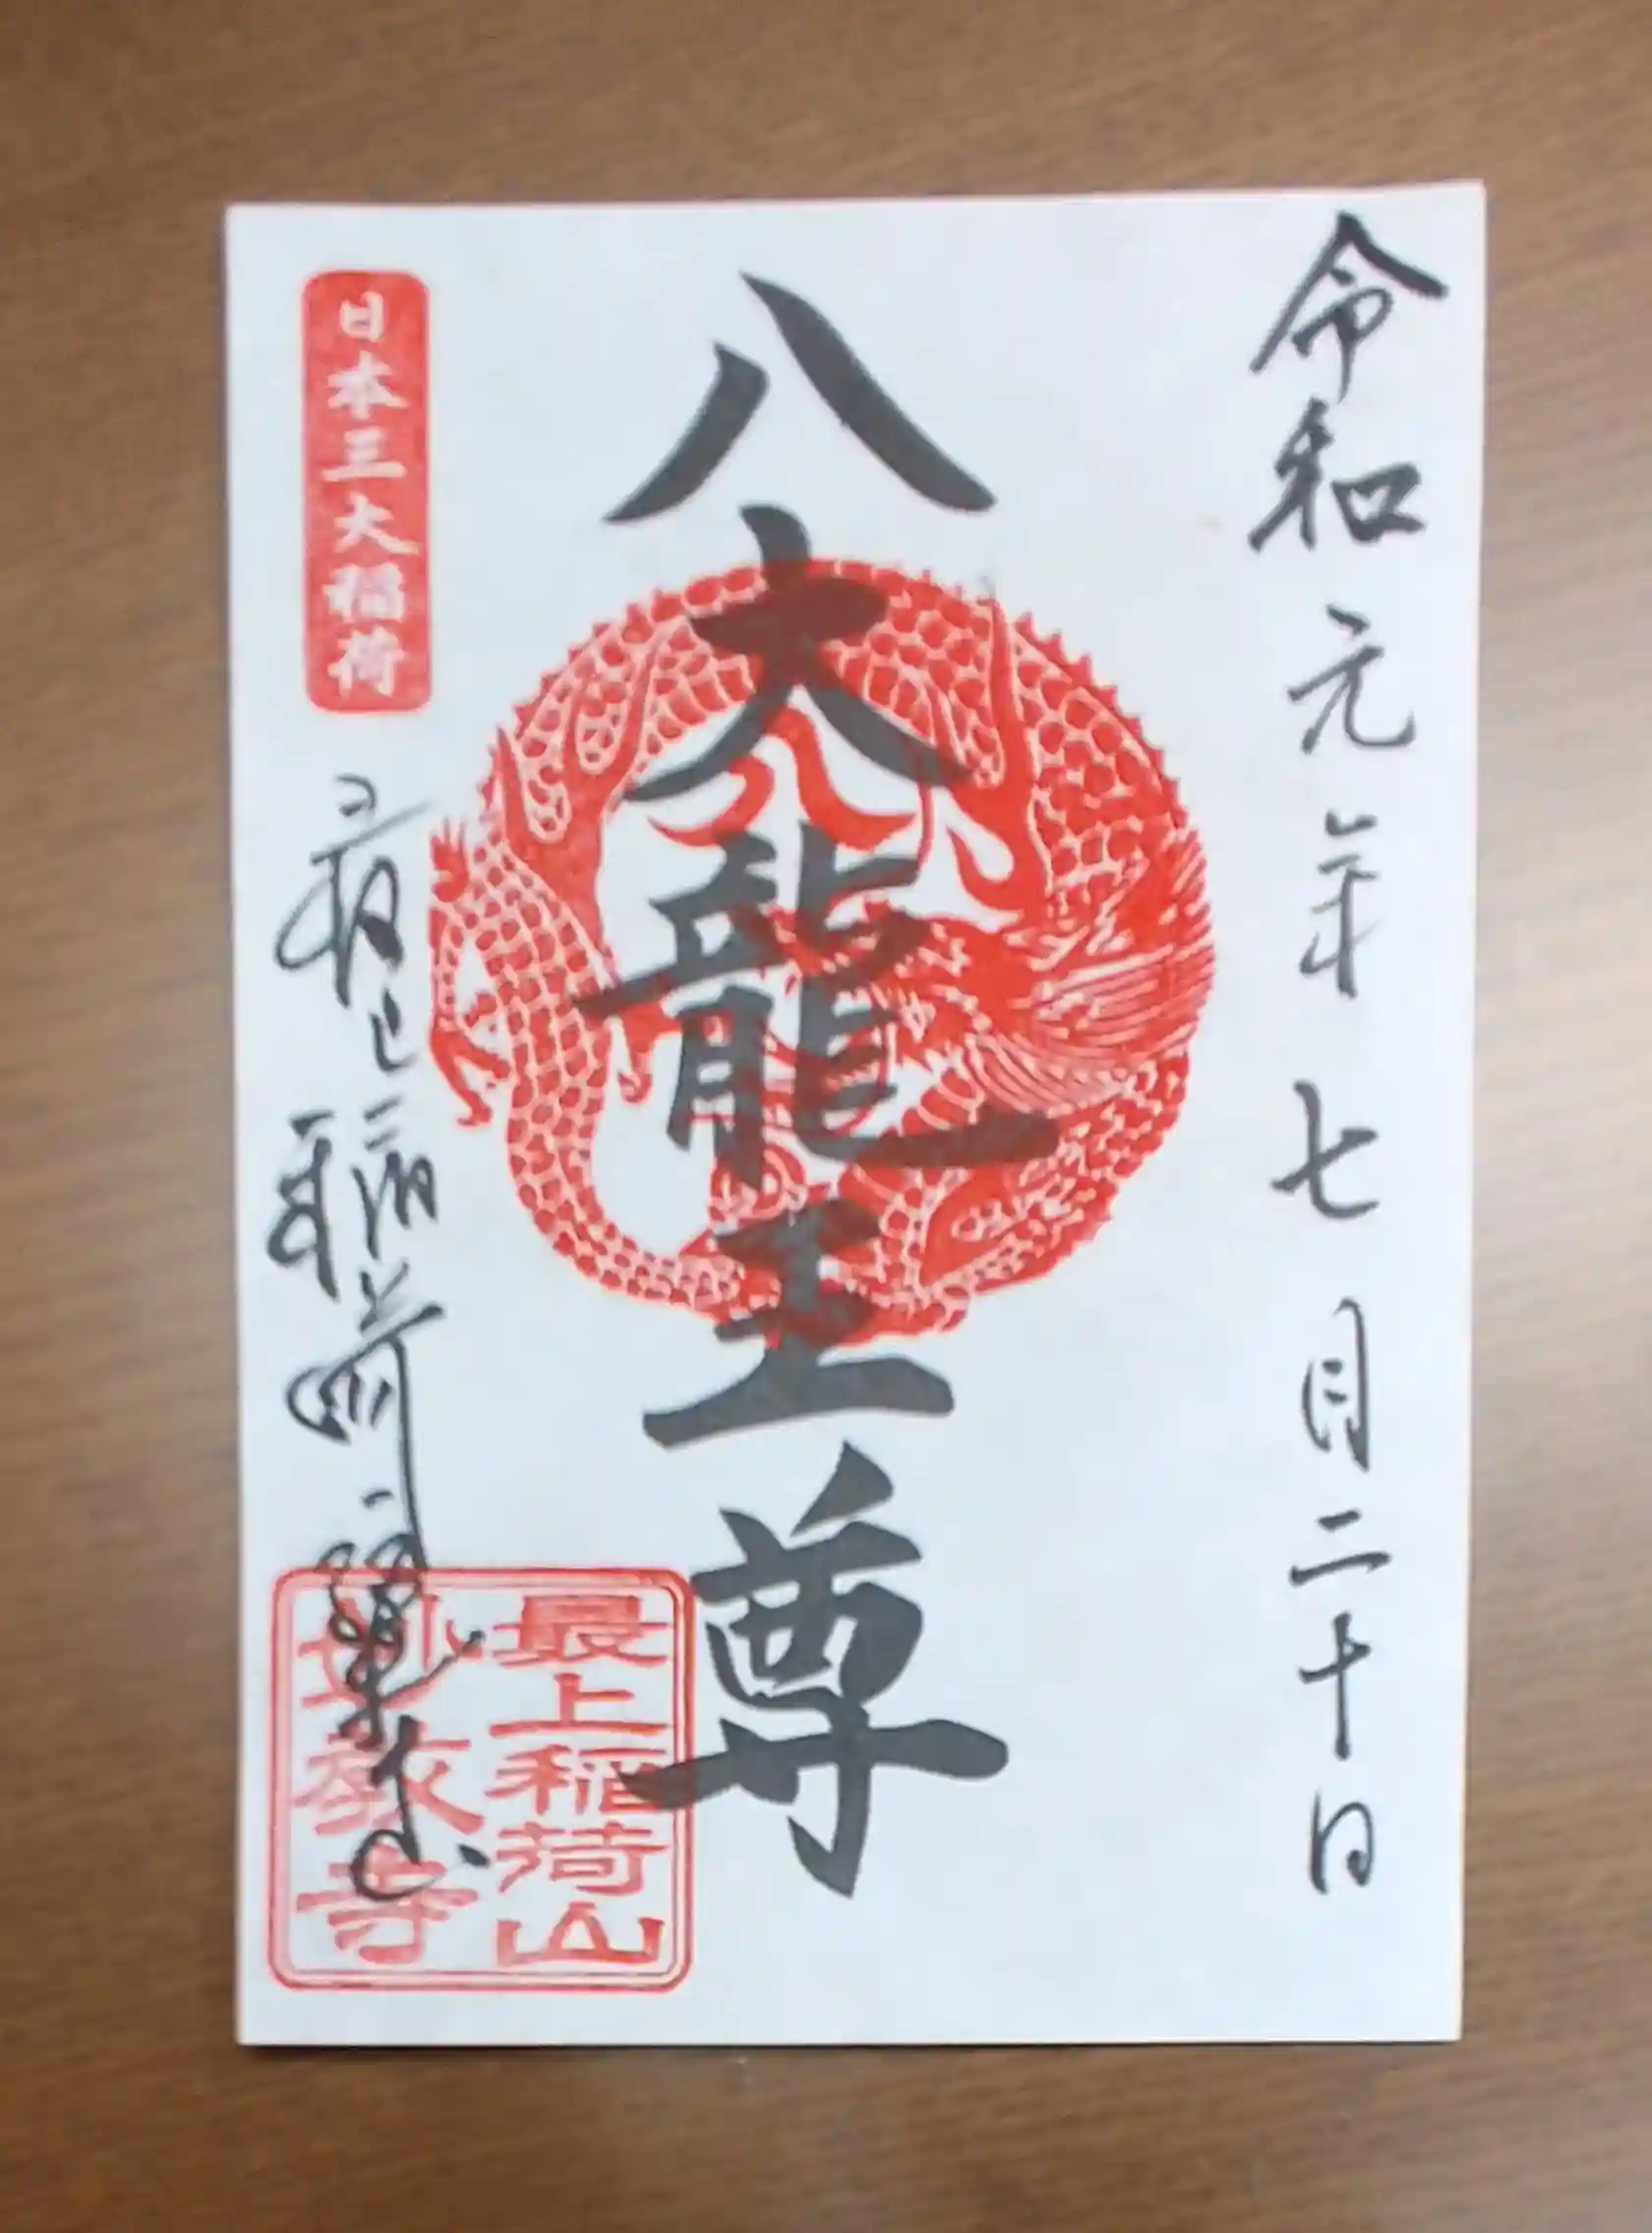 令和元年七月二十日
八大龍王尊
日本三大稲荷
最上稲荷
最上稲荷山
妙教寺